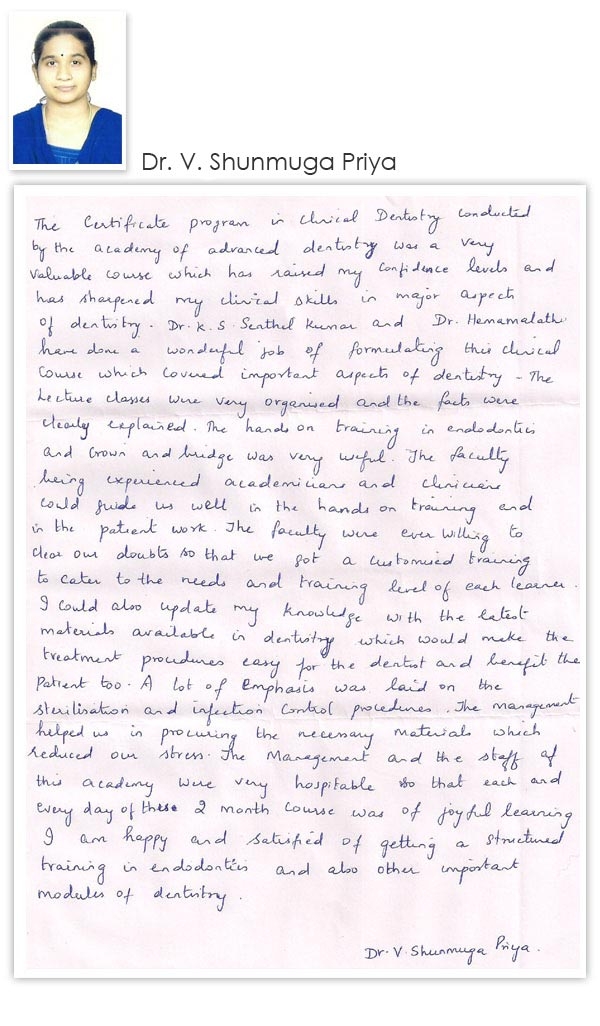 Dr. V. Shunmuga Priya
The Certificate program in clinical Dentistry conducted
by the academy of advanced dentistry was a very
valuable course which has raised my confidence levels and
has sharpened my clinical skills in major aspects
of dentistry. Dr. K. S. Senthil Kumar and Dr. Hemamalathi
have done a wonderful job of formulating this clinical
course which covered important aspects of dentistry - The
Lecture classes were very organised and the facts were
clearly explained. The hands on training in endodontics
and crown and bridge was very useful. The faculty
being experienced academicians and clinicians
could guide us well in the hands on training and
in the patient work. The faculty were ever willing to
clear our doubts so that we got a customised training
to cater to the needs and training level of each learner.
I could also update my knowledge with the latest
materials available in dentistry which would make the
treatment procedures easy for the dentist and benefit the
patient too. A lot of emphasis was laid on the
sterilisation and infection control procedures. The management
helped us in procuring the necessary materials which
reduced our stress. The Management and the staff of
this academy were very hospitable so that each and
every day of these 2 month course was of joyful learning
I am happy and satisfied of getting a structured
training in endodontics and also other important
modules of dentistry.
Dr. V. Shunmuga Priya.